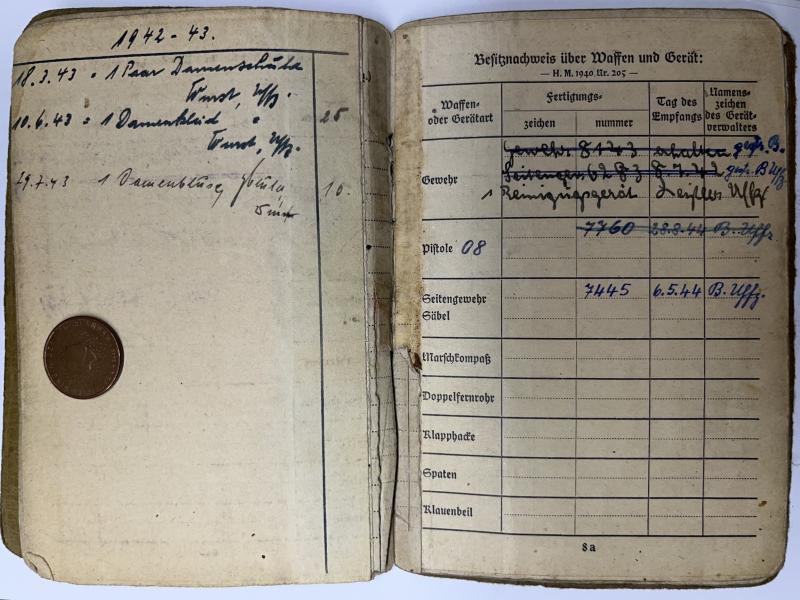 1942-43.
18.3.43 = 1 Paar Damenschuhe
Wurst, Uffz.
10.6.43 = 1 Damenkleid " 25
Wurst, Uffz.
29.7.43 1 Damenbluse 10.
Besitznachweis über Waffen und Gerät:
— H. M. 1940 Nr. 205 —
Waffen- oder Gerätart
Fertigungs-
zeichen
nummer
Tag des Empfangs
Namens-zeichen des Gerät-verwalters
Gewehr
Gewehr 8143 erhalten gez. B.
Seitengew. 6283 8.7.42 gez. B Uffz
1 Reinigungsgerät Uffz
Pistole 08
7760 28.8.44 B. Uffz
Seitengewehr 7445 6.5.44 B. Uffz.
Säbel
Marschkompaß
Doppelfernrohr
Klapphacke
Spaten
Klauenbeil
8a